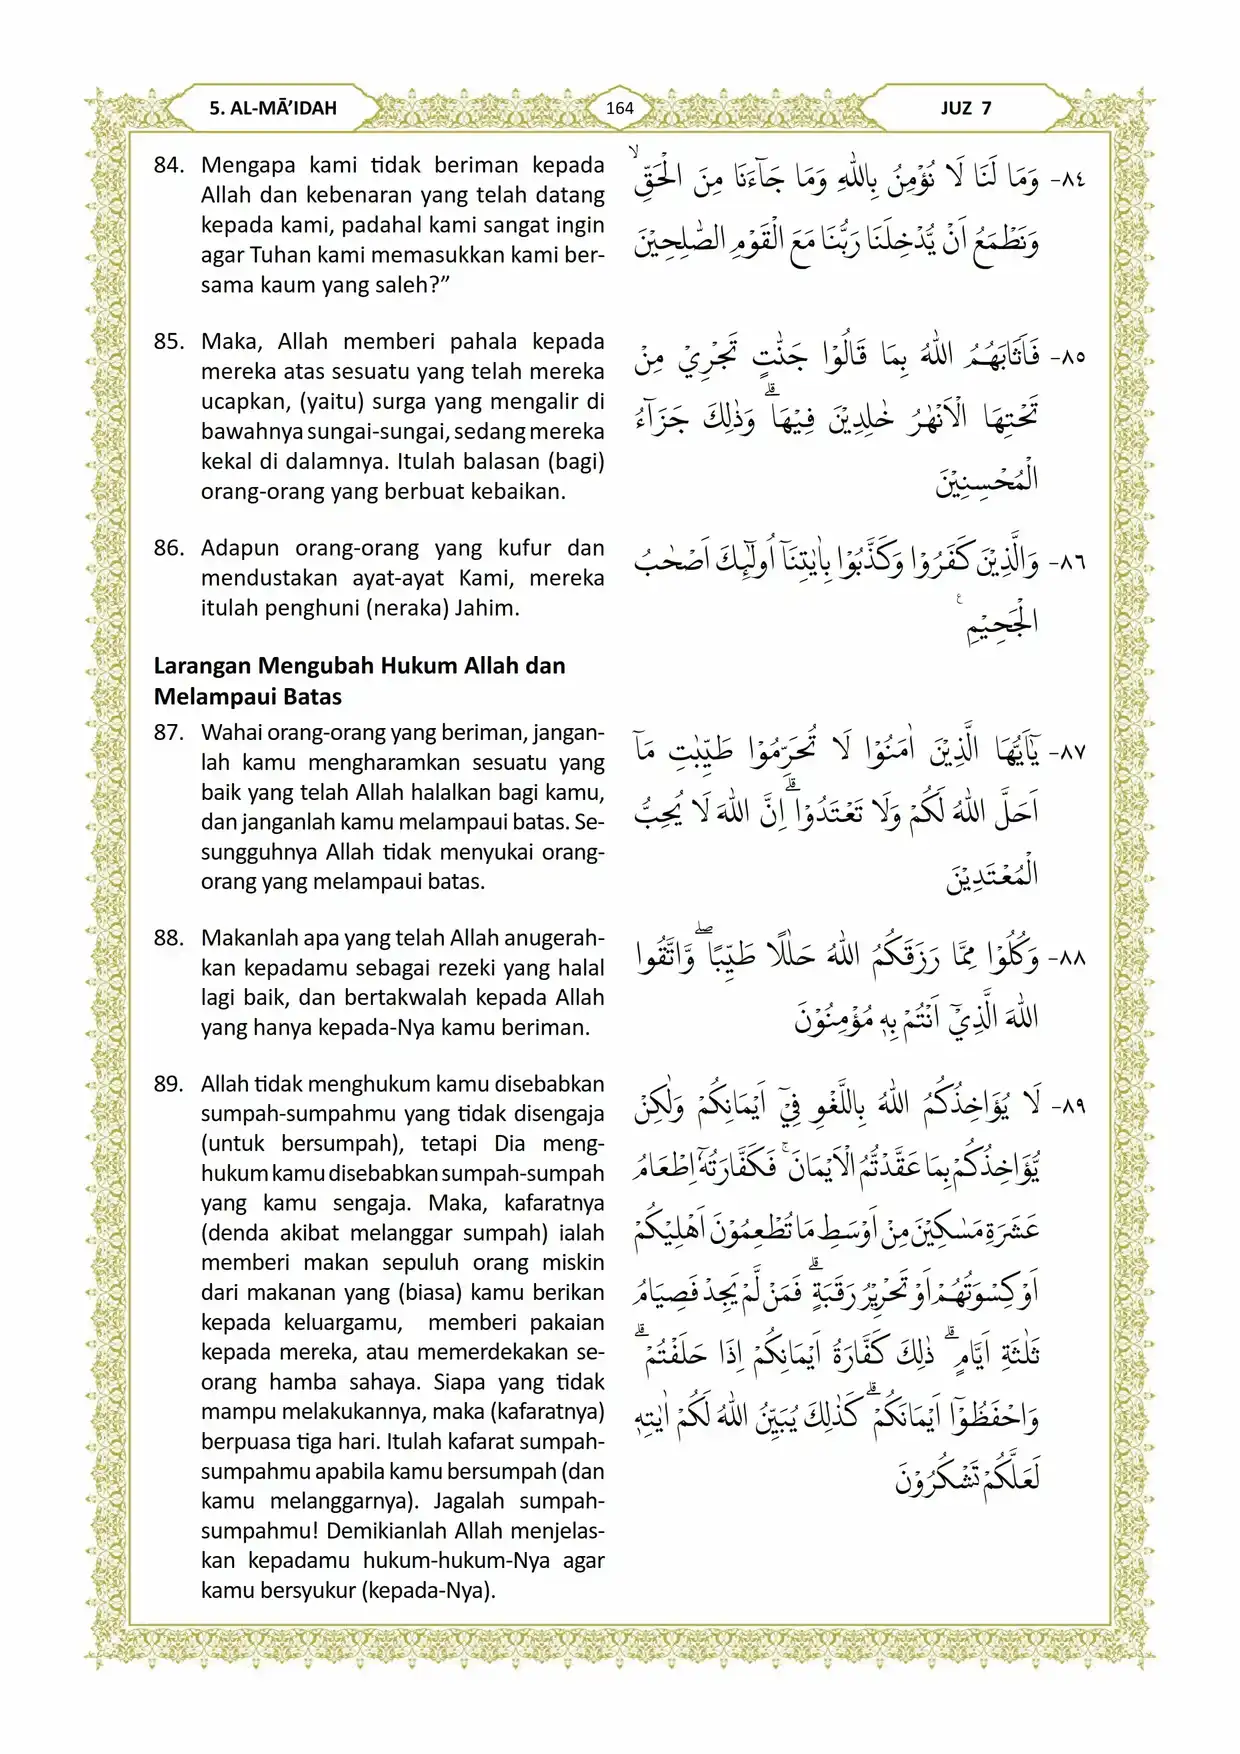 5. AL-MĀ’IDAH
164
JUZ 7
84. Mengapa kami tidak beriman kepada
Allah dan kebenaran yang telah datang
kepada kami, padahal kami sangat ingin
agar Tuhan kami memasukkan kami ber-
sama kaum yang saleh?”
٨٤- وَمَا لَنَا لَا نُؤْمِنُ بِاللّٰهِ وَمَا جَاۤءَنَا مِنَ الْحَقِّۙ
وَنَطْمَعُ اَنْ يُّدْخِلَنَا رَبُّنَا مَعَ الْقَوْمِ الصّٰلِحِيْنَ
85. Maka, Allah memberi pahala kepada
mereka atas sesuatu yang telah mereka
ucapkan, (yaitu) surga yang mengalir di
bawahnya sungai-sungai, sedang mereka
kekal di dalamnya. Itulah balasan (bagi)
orang-orang yang berbuat kebaikan.
٨٥- فَاَثَابَهُمُ اللّٰهُ بِمَا قَالُوْا جَنّٰتٍ تَجْرِيْ مِنْ
تَحْتِهَا الْاَنْهٰرُ خٰلِدِيْنَ فِيْهَاۗ وَذٰلِكَ جَزَاۤءُ
الْمُحْسِنِيْنَ
86. Adapun orang-orang yang kufur dan
mendustakan ayat-ayat Kami, mereka
itulah penghuni (neraka) Jahim.
٨٦- وَالَّذِيْنَ كَفَرُوْا وَكَذَّبُوْا بِاٰيٰتِنَآ اُولٰۤىِٕكَ اَصْحٰبُ
الْجَحِيْمِ ࣖ
Larangan Mengubah Hukum Allah dan
Melampaui Batas
87. Wahai orang-orang yang beriman, jangan-
lah kamu mengharamkan sesuatu yang
baik yang telah Allah halalkan bagi kamu,
dan janganlah kamu melampaui batas. Se-
sungguhnya Allah tidak menyukai orang-
orang yang melampaui batas.
٨٧- يٰٓاَيُّهَا الَّذِيْنَ اٰمَنُوْا لَا تُحَرِّمُوْا طَيِّبٰتِ مَآ
اَحَلَّ اللّٰهُ لَكُمْ وَلَا تَعْتَدُوْاۗ اِنَّ اللّٰهَ لَا يُحِبُّ
الْمُعْتَدِيْنَ
88. Makanlah apa yang telah Allah anugerah-
kan kepadamu sebagai rezeki yang halal
lagi baik, dan bertakwalah kepada Allah
yang hanya kepada-Nya kamu beriman.
٨٨- وَكُلُوْا مِمَّا رَزَقَكُمُ اللّٰهُ حَلٰلًا طَيِّبًاۖ وَّاتَّقُوا
اللّٰهَ الَّذِيْٓ اَنْتُمْ بِهٖ مُؤْمِنُوْنَ
89. Allah tidak menghukum kamu disebabkan
sumpah-sumpahmu yang tidak disengaja
(untuk bersumpah), tetapi Dia meng-
hukum kamu disebabkan sumpah-sumpah
yang kamu sengaja. Maka, kafaratnya
(denda akibat melanggar sumpah) ialah
memberi makan sepuluh orang miskin
dari makanan yang (biasa) kamu berikan
kepada keluargamu, memberi pakaian
kepada mereka, atau memerdekakan se-
orang hamba sahaya. Siapa yang tidak
mampu melakukannya, maka (kafaratnya)
berpuasa tiga hari. Itulah kafarat sumpah-
sumpahmu apabila kamu bersumpah (dan
kamu melanggarnya). Jagalah sumpah-
sumpahmu! Demikianlah Allah menjelas-
kan kepadamu hukum-hukum-Nya agar
kamu bersyukur (kepada-Nya).
٨٩- لَا يُؤَاخِذُكُمُ اللّٰهُ بِاللَّغْوِ فِيْٓ اَيْمَانِكُمْ وَلٰكِنْ
يُّؤَاخِذُكُمْ بِمَا عَقَّدْتُّمُ الْاَيْمَانَۚ فَكَفَّارَتُهٗٓ اِطْعَامُ
عَشَرَةِ مَسٰكِيْنَ مِنْ اَوْسَطِ مَا تُطْعِمُوْنَ اَهْلِيْكُمْ
اَوْ كِسْوَتُهُمْ اَوْ تَحْرِيْرُ رَقَبَةٍۗ فَمَنْ لَّمْ يَجِدْ فَصِيَامُ
ثَلٰثَةِ اَيَّامٍۗ ذٰلِكَ كَفَّارَةُ اَيْمَانِكُمْ اِذَا حَلَفْتُمْۗ
وَاحْفَظُوْٓا اَيْمَانَكُمْۗ كَذٰلِكَ يُبَيِّنُ اللّٰهُ لَكُمْ اٰيٰتِهٖ
لَعَلَّكُمْ تَشْكُرُوْنَ